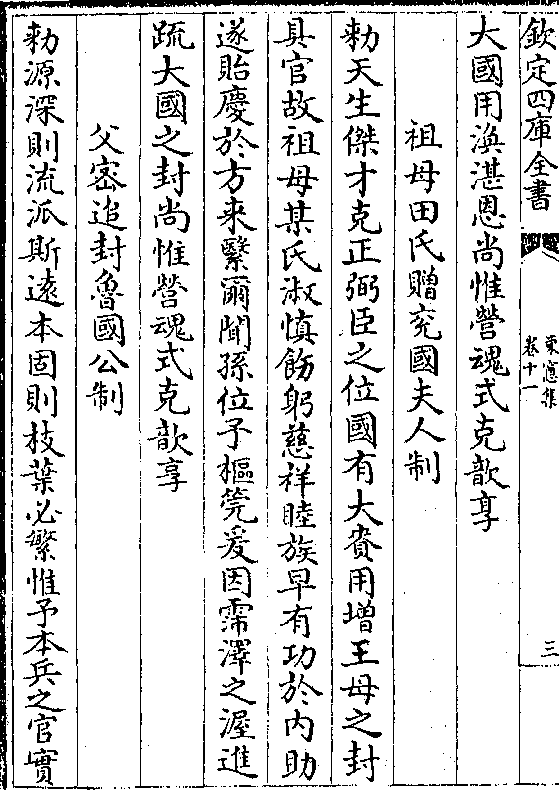 欽定四庫全書
東窻集
卷十一
三
大國用渙湛恩尚惟營魂式克歆享
祖母田氏贈兖國夫人制
勑天生傑才克正弼臣之位國有大賚用增王母之封
具官故祖母某氏淑慎飭躬慈祥睦族早有功於內助
遂貽慶於方來繄爾聞孫位予樞筦爰因霈澤之渥進
疏大國之封尚惟營魂式克歆享
父宻追封魯國公制
勑源深則流派斯逺本固則枝葉必繁惟予本兵之官實